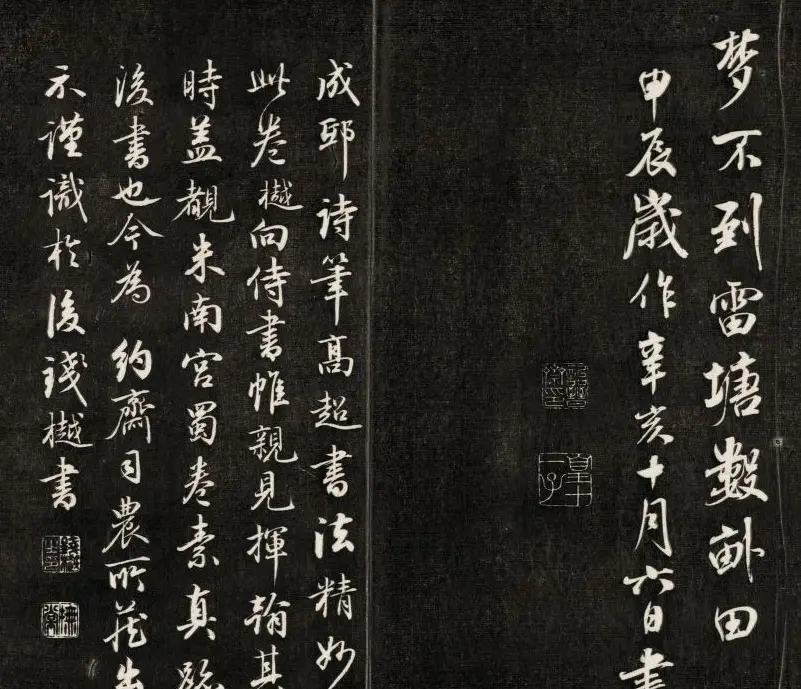 梦不到雷塘數畝田
甲辰歲作辛亥十月六日書
皇十一子
成邸詩筆高超書法精妙
此卷樾向侍書帷親見揮翰其
時蓋觀米南宮蜀卷素真
後書也今為 約齋司農所藏出
示謹識於後錢樾書